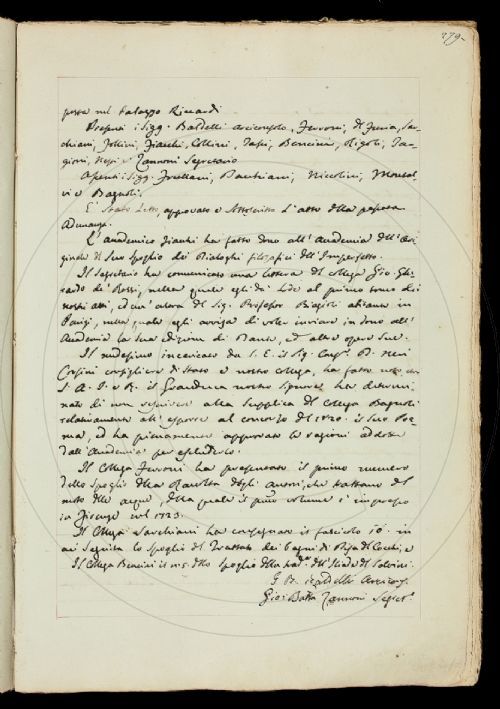 279.
posta nel Palazzo Riccardi
Presenti i Sigg. Baldelli Arciconsolo, Ferroni, del Furia, Sar-
chiani, Follini, Fiacchi, Collini, Targioni, Bencini, Rigoli,
gioni, Nesi e Zannoni Segretario
Assenti i Sigg. Frullani, Pauchiani, Niccolini, Montal-
vi e Bagnoli.
E' stato letto, approvato e sottoscritto l'atto della passata
Adunanza.
L'Accademico Fiacchi ha fatto dono all'Accademia dell'ori-
ginale di suo spoglio dei Dialoghi filosofici dell'Imperfetto.
Il Segretario ha comunicato una lettera del Collega Gio. Ghe-
rardo de' Rossi, nella quale egli dà lode al primo tomo dei
nostri atti, ed un'altra del Sig. Professor Biagioli abitante in
Parigi, nella quale egli avvisa di voler inviare in dono all'
Accademia la sua edizione di Dante, ed altre opere sue.
Il medesimo incaricato da S. E. il Sig. Cav. D. Neri
Corsini consigliere di Stato e nostro collega, ha fatto noto che
S. A. I. e R. il Granduca nostro Signore ha determi-
nato di non
alla supplica del Collega Bagnoli
relativamente all'esporre al concorso del 1820. il suo Poe-
ma, ed ha pienamente approvato le ragioni addotte
dall'Accademia per escluderlo.
Il Collega Ferroni ha presentato il primo numero
dello Spoglio della Raccolta degli autori, che trattano del
moto delle acque, della quale il primo volume è impresso
in Firenze nel 1723.
Il Collega Sarchiani ha consegnato il fascicolo 10. in
cui seguita lo Spoglio del Trattato dei Bagni di Pisa del Cocchi, e
Il Collega Bencini il n. 5. dello Spoglio della trad.ne dell'Iliade del Salvini.
G. B. Baldelli Arcicons.
Gio: Batta Zannoni Segret.